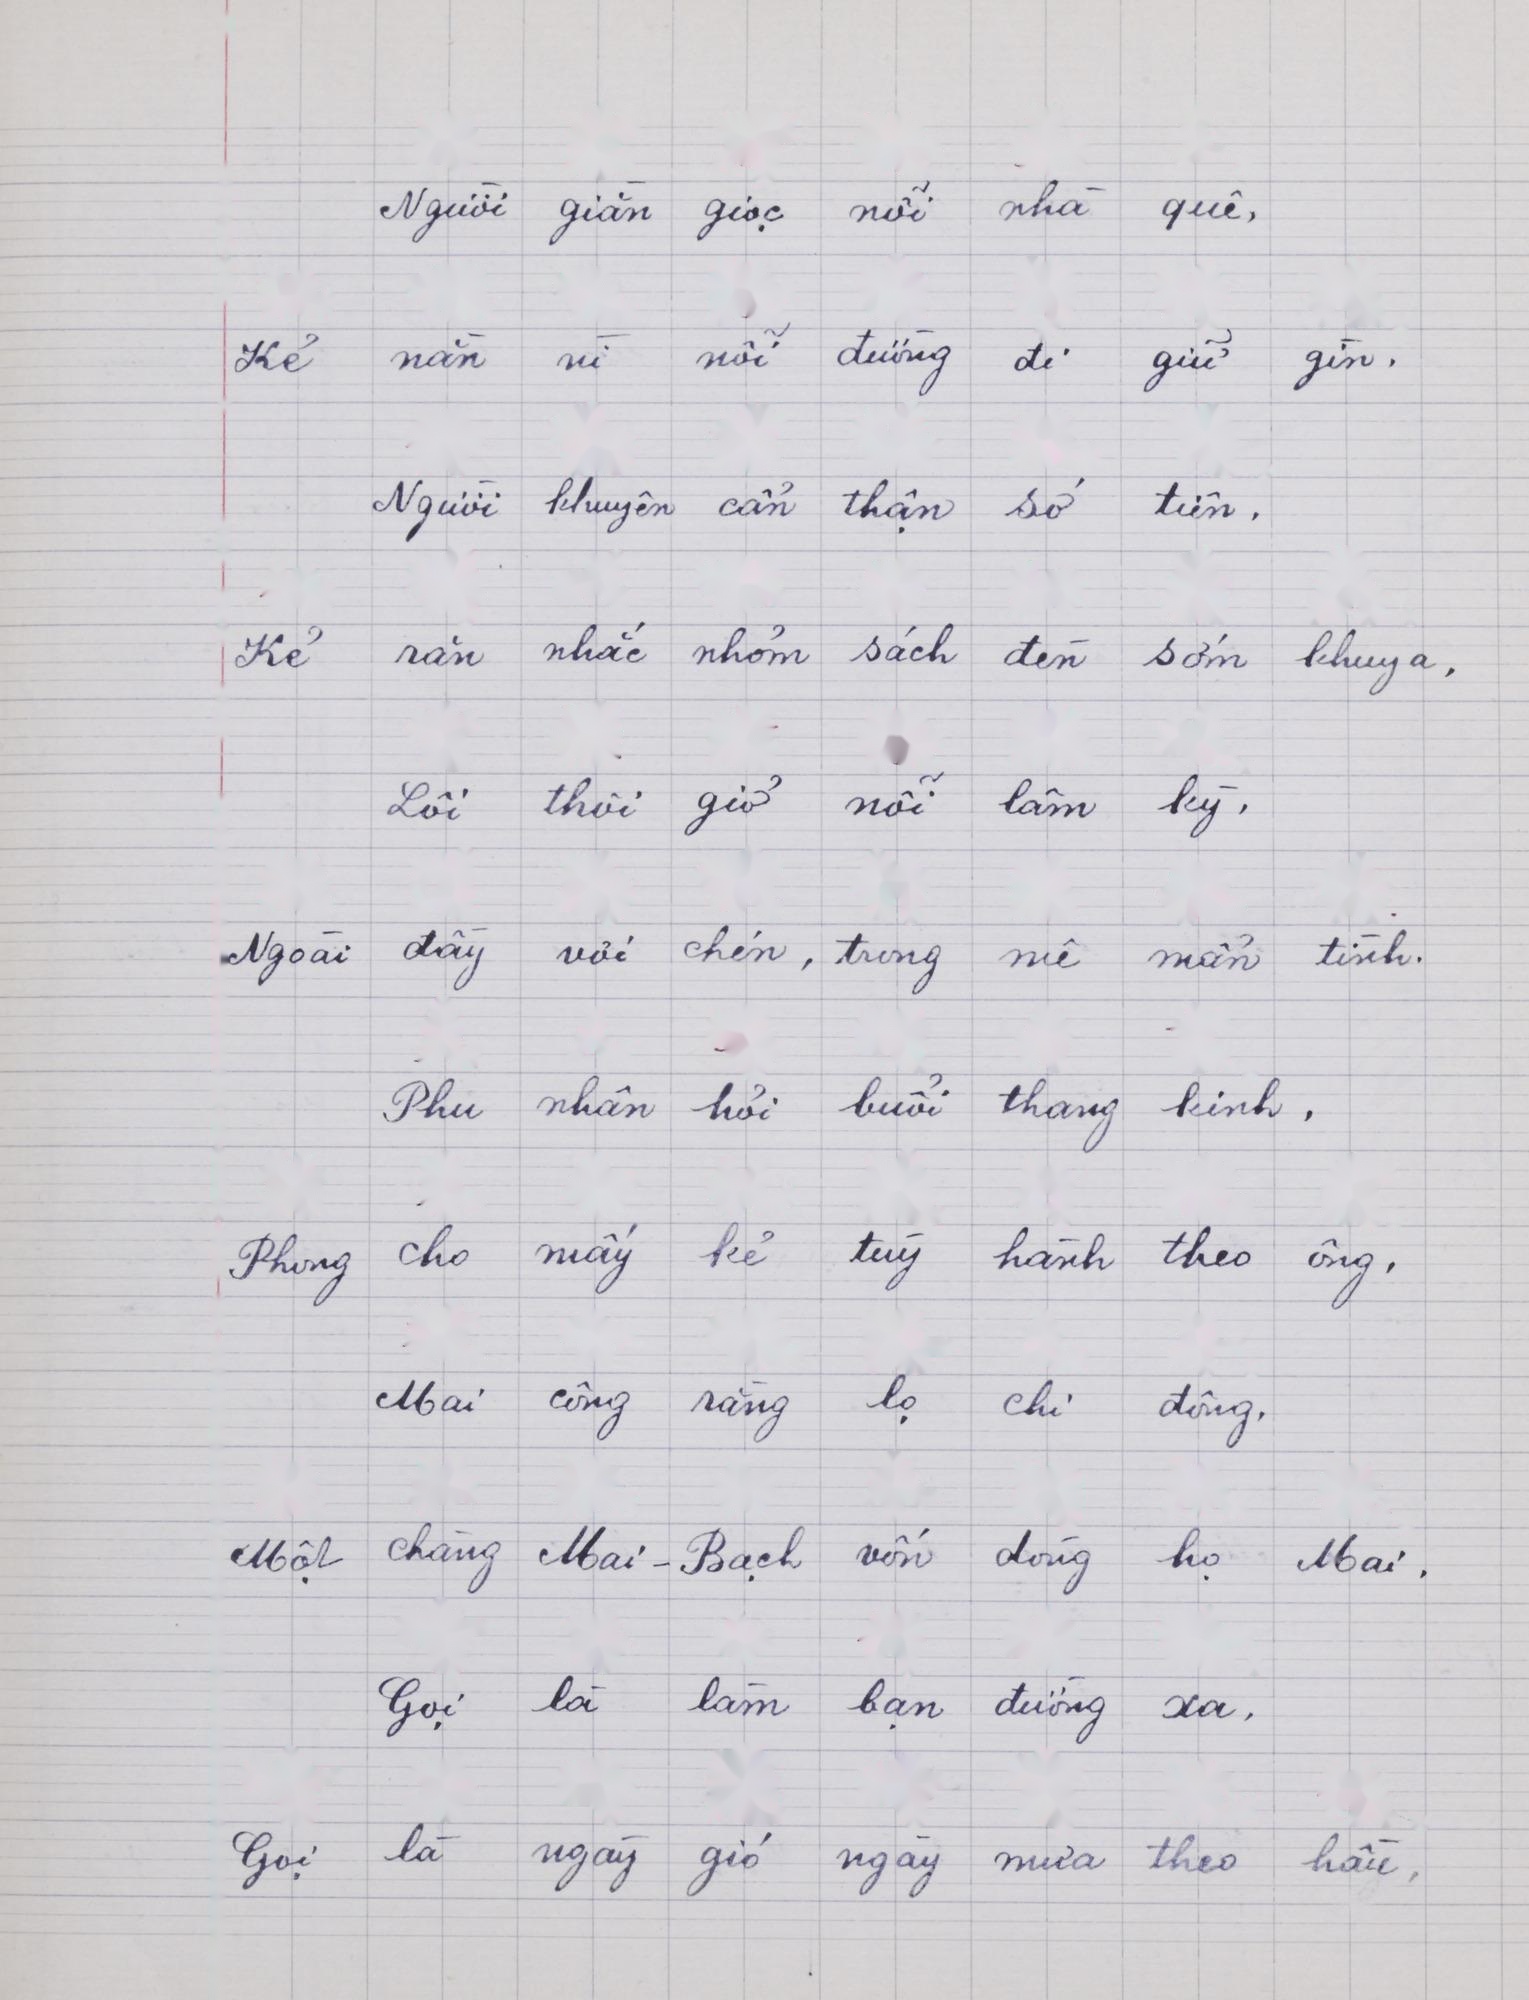 Người giàn giọc nỗi nhà quê,
Kẻ nằn nì nỗi đường đi giữ gìn.
Người khuyên cẩn thận sổ tiền.
Kẻ răn nhắc nhỏm sách đèn sớm khuya,
Lôi thôi giở nỗi lầm kỳ,
Ngoài đầy với chén, trong mê mẩn tình.
Phu nhân hỏi buổi thang kinh,
Phong cho mấy kẻ tuỳ hành theo ông,
Mai công rằng lọ chi đông,
Một chàng Mai-Bạch vốn dòng họ Mai,
Gọi là làm bạn đường xa,
Gọi là ngày gió ngày mưa theo hầu,